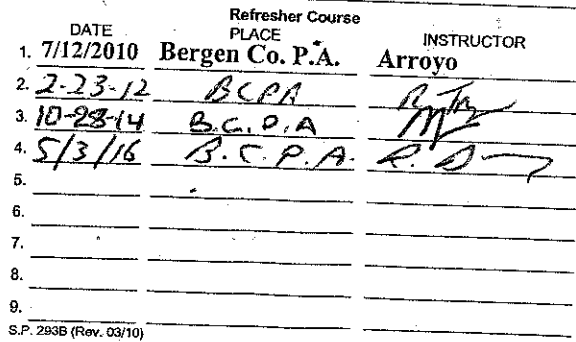 Refresher Course
DATE PLACE INSTRUCTOR
1. 7/12/2010 Bergen Co. P.A. Arroyo
2. 2-23-12 BCPA
3. 10-28-14 B.C.P.A
4. 5/3/16 B.C.P.A. R.
5.
6.
7.
8.
9.
S.P. 293B (Rev. 03/10)